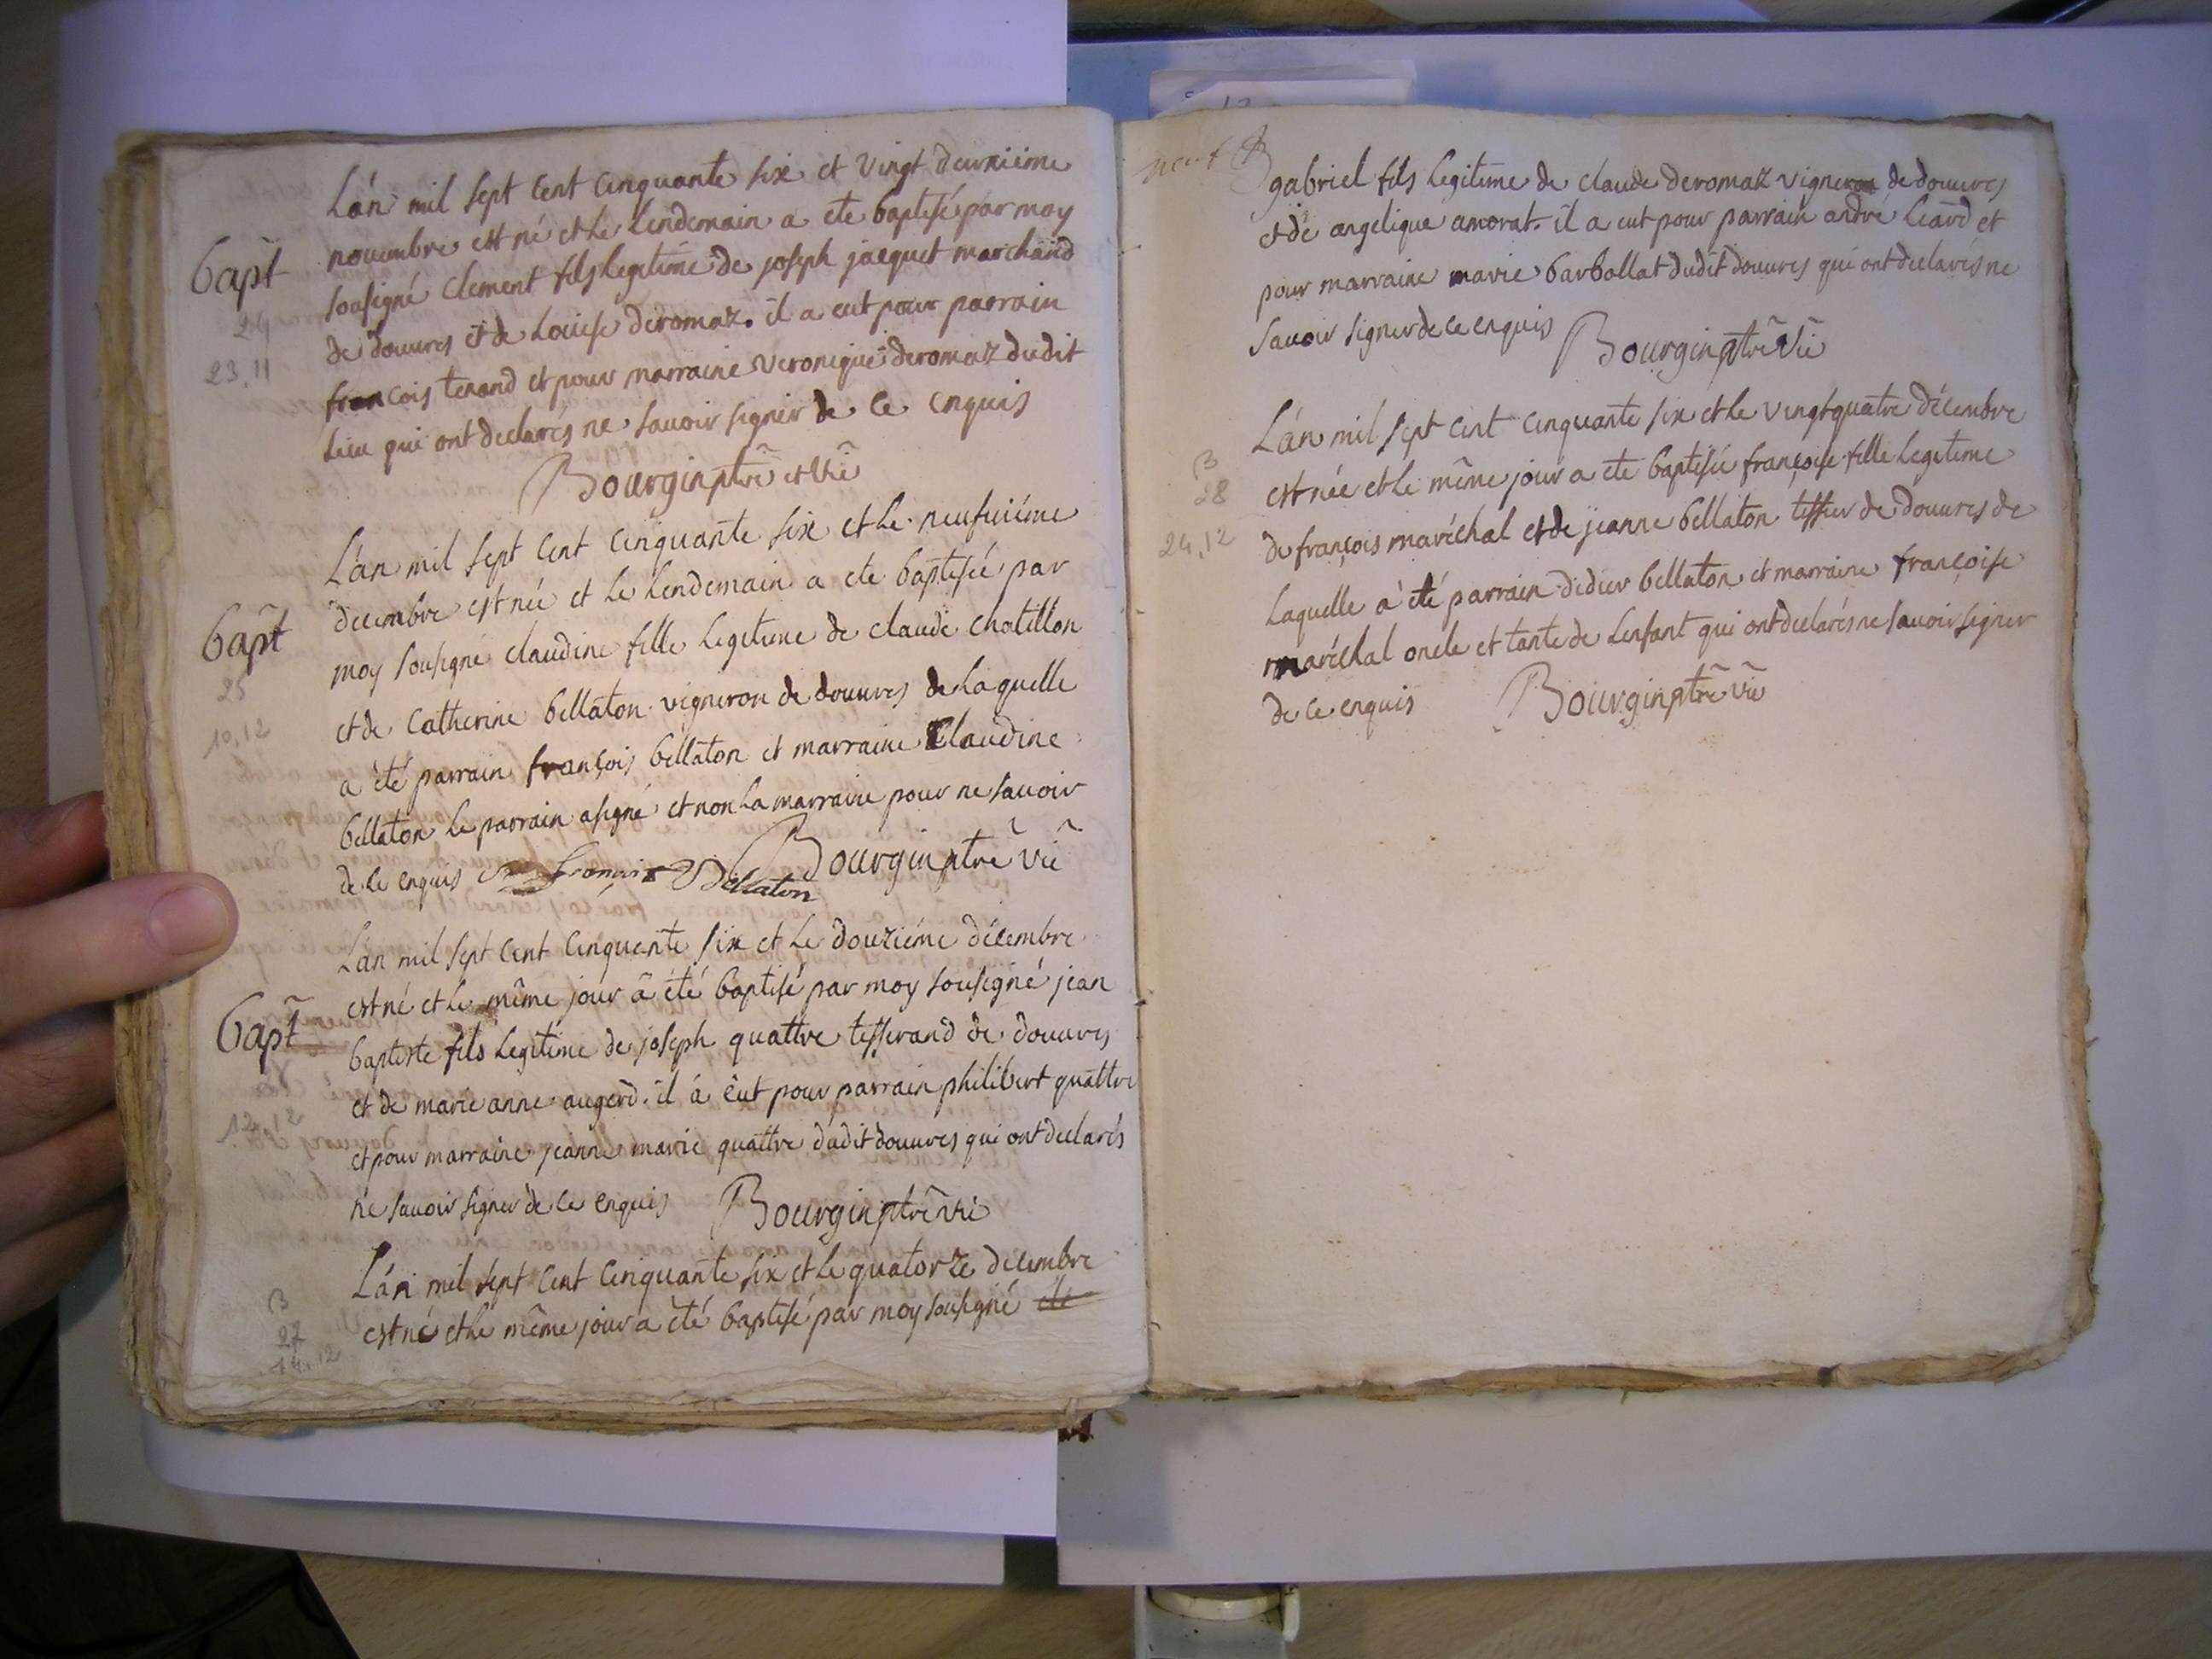 Lán mil sept cent cinquante six et vingt deuxiéme
novembre est né et le lendemain a ete baptisé par moy
bapt
sousigné clement fils legitime de joseph jacquet marchand
24
de douvres et de louise deromaz. il a eut pour parrain
23,11
francois tenand et pour marraine veronique deromaz dudit
lieu qui ont declarés ne savoir signer de ce enquis
Bourgin ptre et vic
Lán mil sept cent cinquante six et le neufuiéme
decembre est née et le lendemain a ete baptisée par
bapt
moy sousigné claudine fille legitime de claude chatillon
25
et de catherine bellaton vigneron de douvres de laquelle
10,12
a été parrain françois bellaton et marraine Claudine
bellaton le parrain a signé et non la marraine pour ne savoir
de ce enquis françois Bellaton Bourgin ptre vic
Lán mil sept cent cinquante six et le douziéme décembre
est né et le même jour a été baptisé par moy sousigné jean
bapt
baptiste fils legitime de joseph quattre tisserand de douvres
et de marie anne augerd. il á eut pour parrain philibert quattre
12,12
et pour marraine jeanne marie quattre dudit douvres qui ont declarés
ne savoir signer de ce enquis Bourgin ptre vic
Lán mil sept cent cinquante six et le quatorze decembre
B
27
est né et le même jour a été baptisé par moy sousigné été
14,12
neuf
gabriel fils legitime de claude deromaz vigneron de douvres
et de angelique amorat. il a eut pour parrain andré liard et
pour marraine marie barbollat dudit douvres qui ont declarés ne
savoir signer de ce enquis Bourgin ptre vic
Lán mil sept cent cinquante six et le vingtquatre décembre
B
28
est née et le même jour a ete baptisée françoise fille legitime
24,12
de françois maréchal et de jeanne bellaton tissier de douvres de
laquelle a été parrain didier bellaton et marraine françoise
maréchal oncle et tante de lenfant qui ont declarés ne savoir signer
de ce enquis Bourgin ptre vic